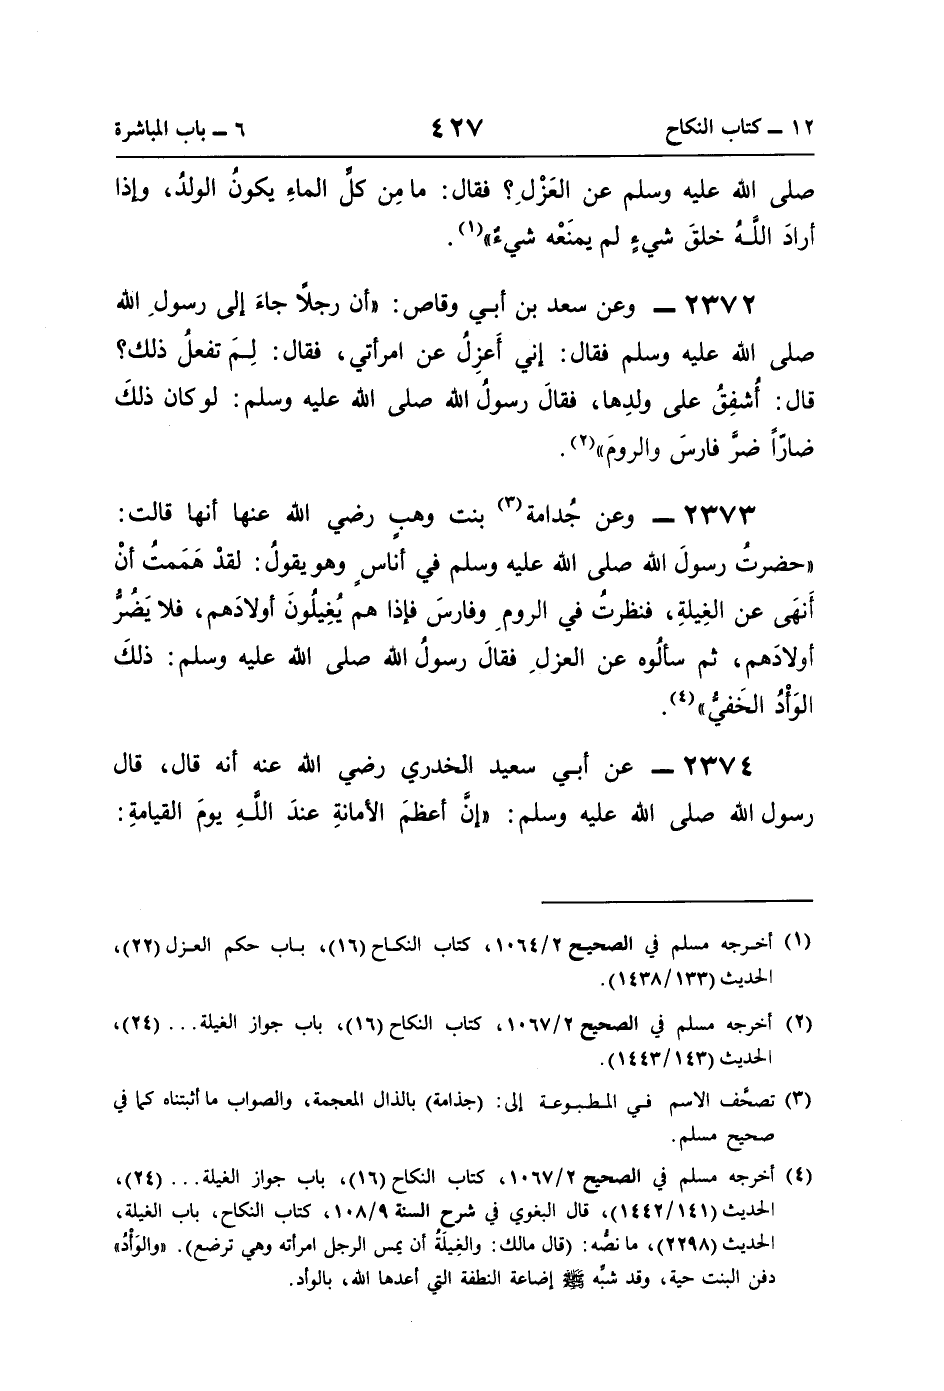 ١٢ ــ كتاب النكاح ٤٢٧ ٦ ــ باب المباشرة
صلى الله عليه وسلم عن العَزْلِ؟ فقال: ما مِن كلِّ الماءِ يكونُ الولدُ، وإذا
أرادَ اللَّهُ خلقَ شيءٍ لم يمنَعْه شيءٌ»(١).
٢٣٧٢ ــ وعن سعد بن أبي وقاص: «أن رجلًا جاءَ إلى رسولِ الله
صلى الله عليه وسلم فقال: إني أَعزِلُ عن امرأتي، فقال: لِمَ تفعلُ ذلك؟
قال: أُشفِقُ على ولدِها، فقالَ رسولُ الله صلى الله عليه وسلم: لو كان ذلكَ
ضارّاً ضرَّ فارسَ والرومَ»(٢).
٢٣٧٣ ــ وعن جُدامة(٣) بنت وهبٍ رضي الله عنها أنها قالت:
«حضرتُ رسولَ الله صلى الله عليه وسلم في أناسٍ وهو يقولُ: لقدْ هَمَمتُ أنْ
أَنهَى عن الغِيلةِ، فنظرتُ في الرومِ وفارسَ فإذا هم يُغِيلُونَ أولادَهم، فلا يَضُرُّ
أولادَهم، ثم سألُوه عن العزلِ فقالَ رسولُ الله صلى الله عليه وسلم: ذلكَ
الوَأْدُ الخَفيُّ»(٤).
٢٣٧٤ ــ عن أبي سعيد الخدري رضي الله عنه أنه قال، قال
رسول الله صلى الله عليه وسلم: «إنَّ أعظمَ الأمانةِ عندَ اللَّهِ يومَ القيامةِ:
(١) أخرجه مسلم في الصحيح ١٠٦٤/٢، كتاب النكاح (١٦)، باب حكم العزل (٢٢)،
الحديث (١٤٣٨/١٣٣).
(٢) أخرجه مسلم في الصحيح ١٠٦٧/٢، كتاب النكاح (١٦)، باب جواز الغيلة... (٢٤)،
الحديث (١٤٤٣/١٤٣).
(٣) تصحَّف الاسم في المطبوعة إلى: (جذامة) بالذال المعجمة، والصواب ما أثبتناه كما في
صحيح مسلم.
(٤) أخرجه مسلم في الصحيح ١٠٦٧/٢، كتاب النكاح (١٦)، باب جواز الغيلة... (٢٤)،
الحديث (١٤٤٢/١٤١)، قال البغوي في شرح السنة ١٠٨/٩، كتاب النكاح، باب الغيلة،
الحديث (٢٢٩٨)، ما نصُّه: (قال مالك: والغِيلَةُ أن يمس الرجل امرأته وهي ترضع). «والوَأْدُ»
دفن البنت حية، وقد شبَّه ﷺ إضاعة النطفة التي أعدها الله، بالوأد.